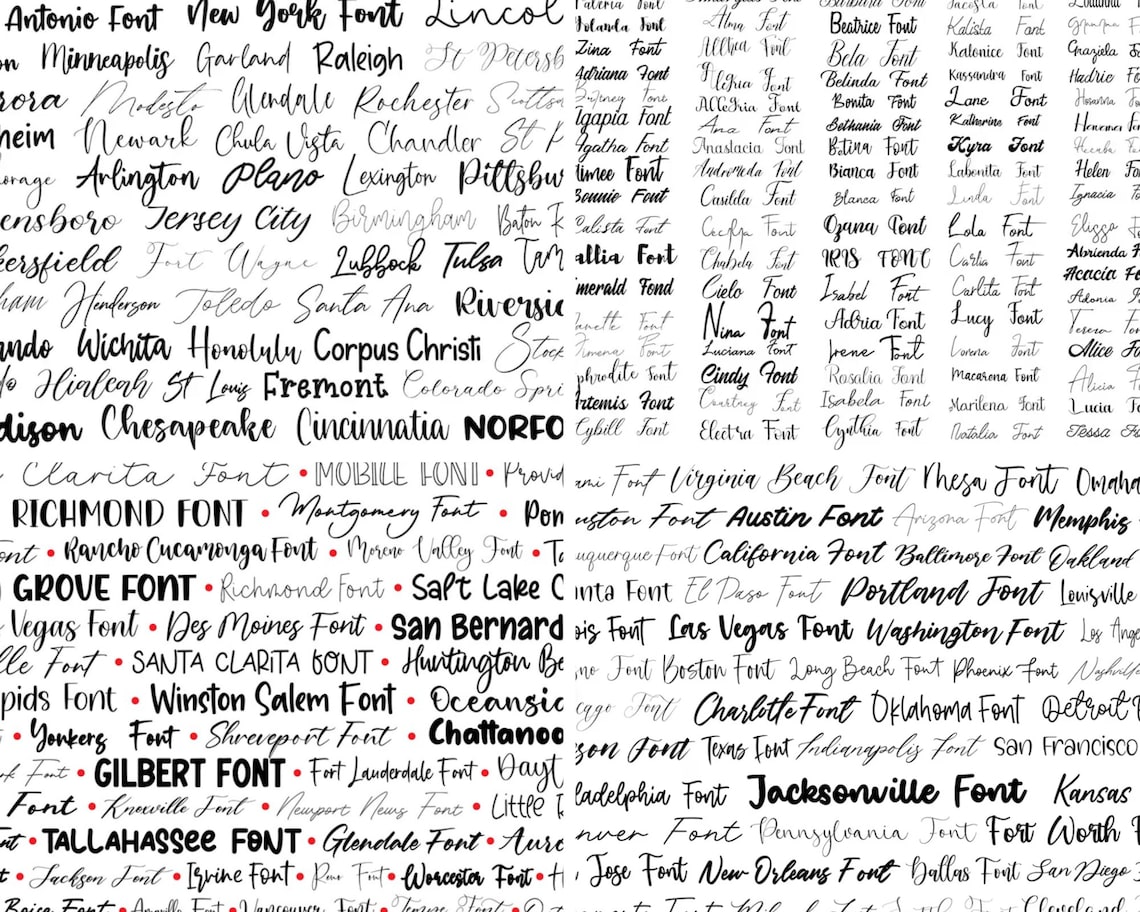 Antonio Font New York Font Lincol
on Minneapolis Garland Raleigh St Petersb
rora Modesto Glendale Rochester Scottsd
heim Newark Chula Vista Chandler St P
horage Arlington Plano Lexington Pittsbu
ensboro Jersey City Birmingham Baton R
kersfield Fort Wayne Lubbock Tulsa Tam
ham Henderson Toledo Santa Ana Riversid
ando Wichita Honolulu Corpus Christi Stock
do Hialeah St Louis Fremont Colorado Spri
dison Chesapeake Cincinnatia NORFO
Valeria Font
Yolanda Font
Zina Font
Adriana Font
Britney Font
Agapia Font
Agatha Font
Aimee Font
Bonnie Font
Calista Font
allia Font
merald Fond
Janette Font
Ximena Font
phrodite Font
Artemis Font
Cybill Font
Alma Font
Allthea Font
Alegria Font
Allegria Font
Ana Font
Anastacia Font
Andromeda Font
Casilda Font
Cecilya Font
Chabela Font
Cielo Font
Nina Font
Luciana Font
Cindy Font
Courtney Font
Electra Font
Barbara Font
Beatrice Font
Bela Font
Belinda Font
Bonita Font
Bethania Font
Betina Font
Bianca Font
Blanca Font
Ozana Font
IRIS FONT
Isabel Font
Adria Font
Irene Font
Rosalia Font
Isabela Font
Cynthia Font
Jacosta Font
Kalista Font
Katonice Font
Kassandra Font
Lane Font
Katherine Font
Kyra Font
Labonita Font
Linda Font
Lola Font
Carlia Font
Carlita Font
Lucy Font
Lorena Font
Macarena Font
Marilena Font
Natalia Font
Graziela Fo
Hadrie Fo
Hosanna
Helen Fo
Ignacia
Elisso
Abrienda Fo
Acacia Fo
Adonia
Teresa
Alice Fo
Alicia
Lucia Fo
Tessa Fo
Clarita Font • MOBILE FONT • Provid
RICHMOND FONT • Montgomery Font • Pom
ont • Rancho Cucamonga Font • Moreno Valley Font • Ta
GROVE FONT • Richmond Font • Salt Lake C
Vegas Font • Des Moines Font • San Bernard
lle Font • SANTA CLARITA FONT • Huntington Be
pids Font • Winston Salem Font • Oceansid
• Yonkers Font • Shreveport Font • Chattanoo
rk Font • GILBERT FONT • Fort Lauderdale Font • Dayt
Font • Knoxville Font • Newport News Font • Little
nt • TALLAHASSEE FONT • Glendale Font • Auro
t • Jackson Font • Irvine Font • Reno Font • Worcester Font • H
Boise Font • Amarillo Font • Vancouver Font • Tempe Font •
ami Font Virginia Beach Font Mesa Font Omaha
uston Font Austin Font Arizona Font Memphis
uquerque Font California Font Baltimore Font Oakland
anta Font El Paso Font Portland Font Louisville
ois Font Las Vegas Font Washington Font Los Ange
no Font Boston Font Long Beach Font Phoenix Font Nashville
cago Font Charlotte Font Oklahoma Font Detroit F
son Font Texas Font Indianapolis Font San Francisco
ladelphia Font Jacksonville Font Kansas
nver Font Pennsylvania Font Fort Worth F
Jose Font New Orleans Font Dallas Font San Diego F
Font Milwaukee Font Cleveland